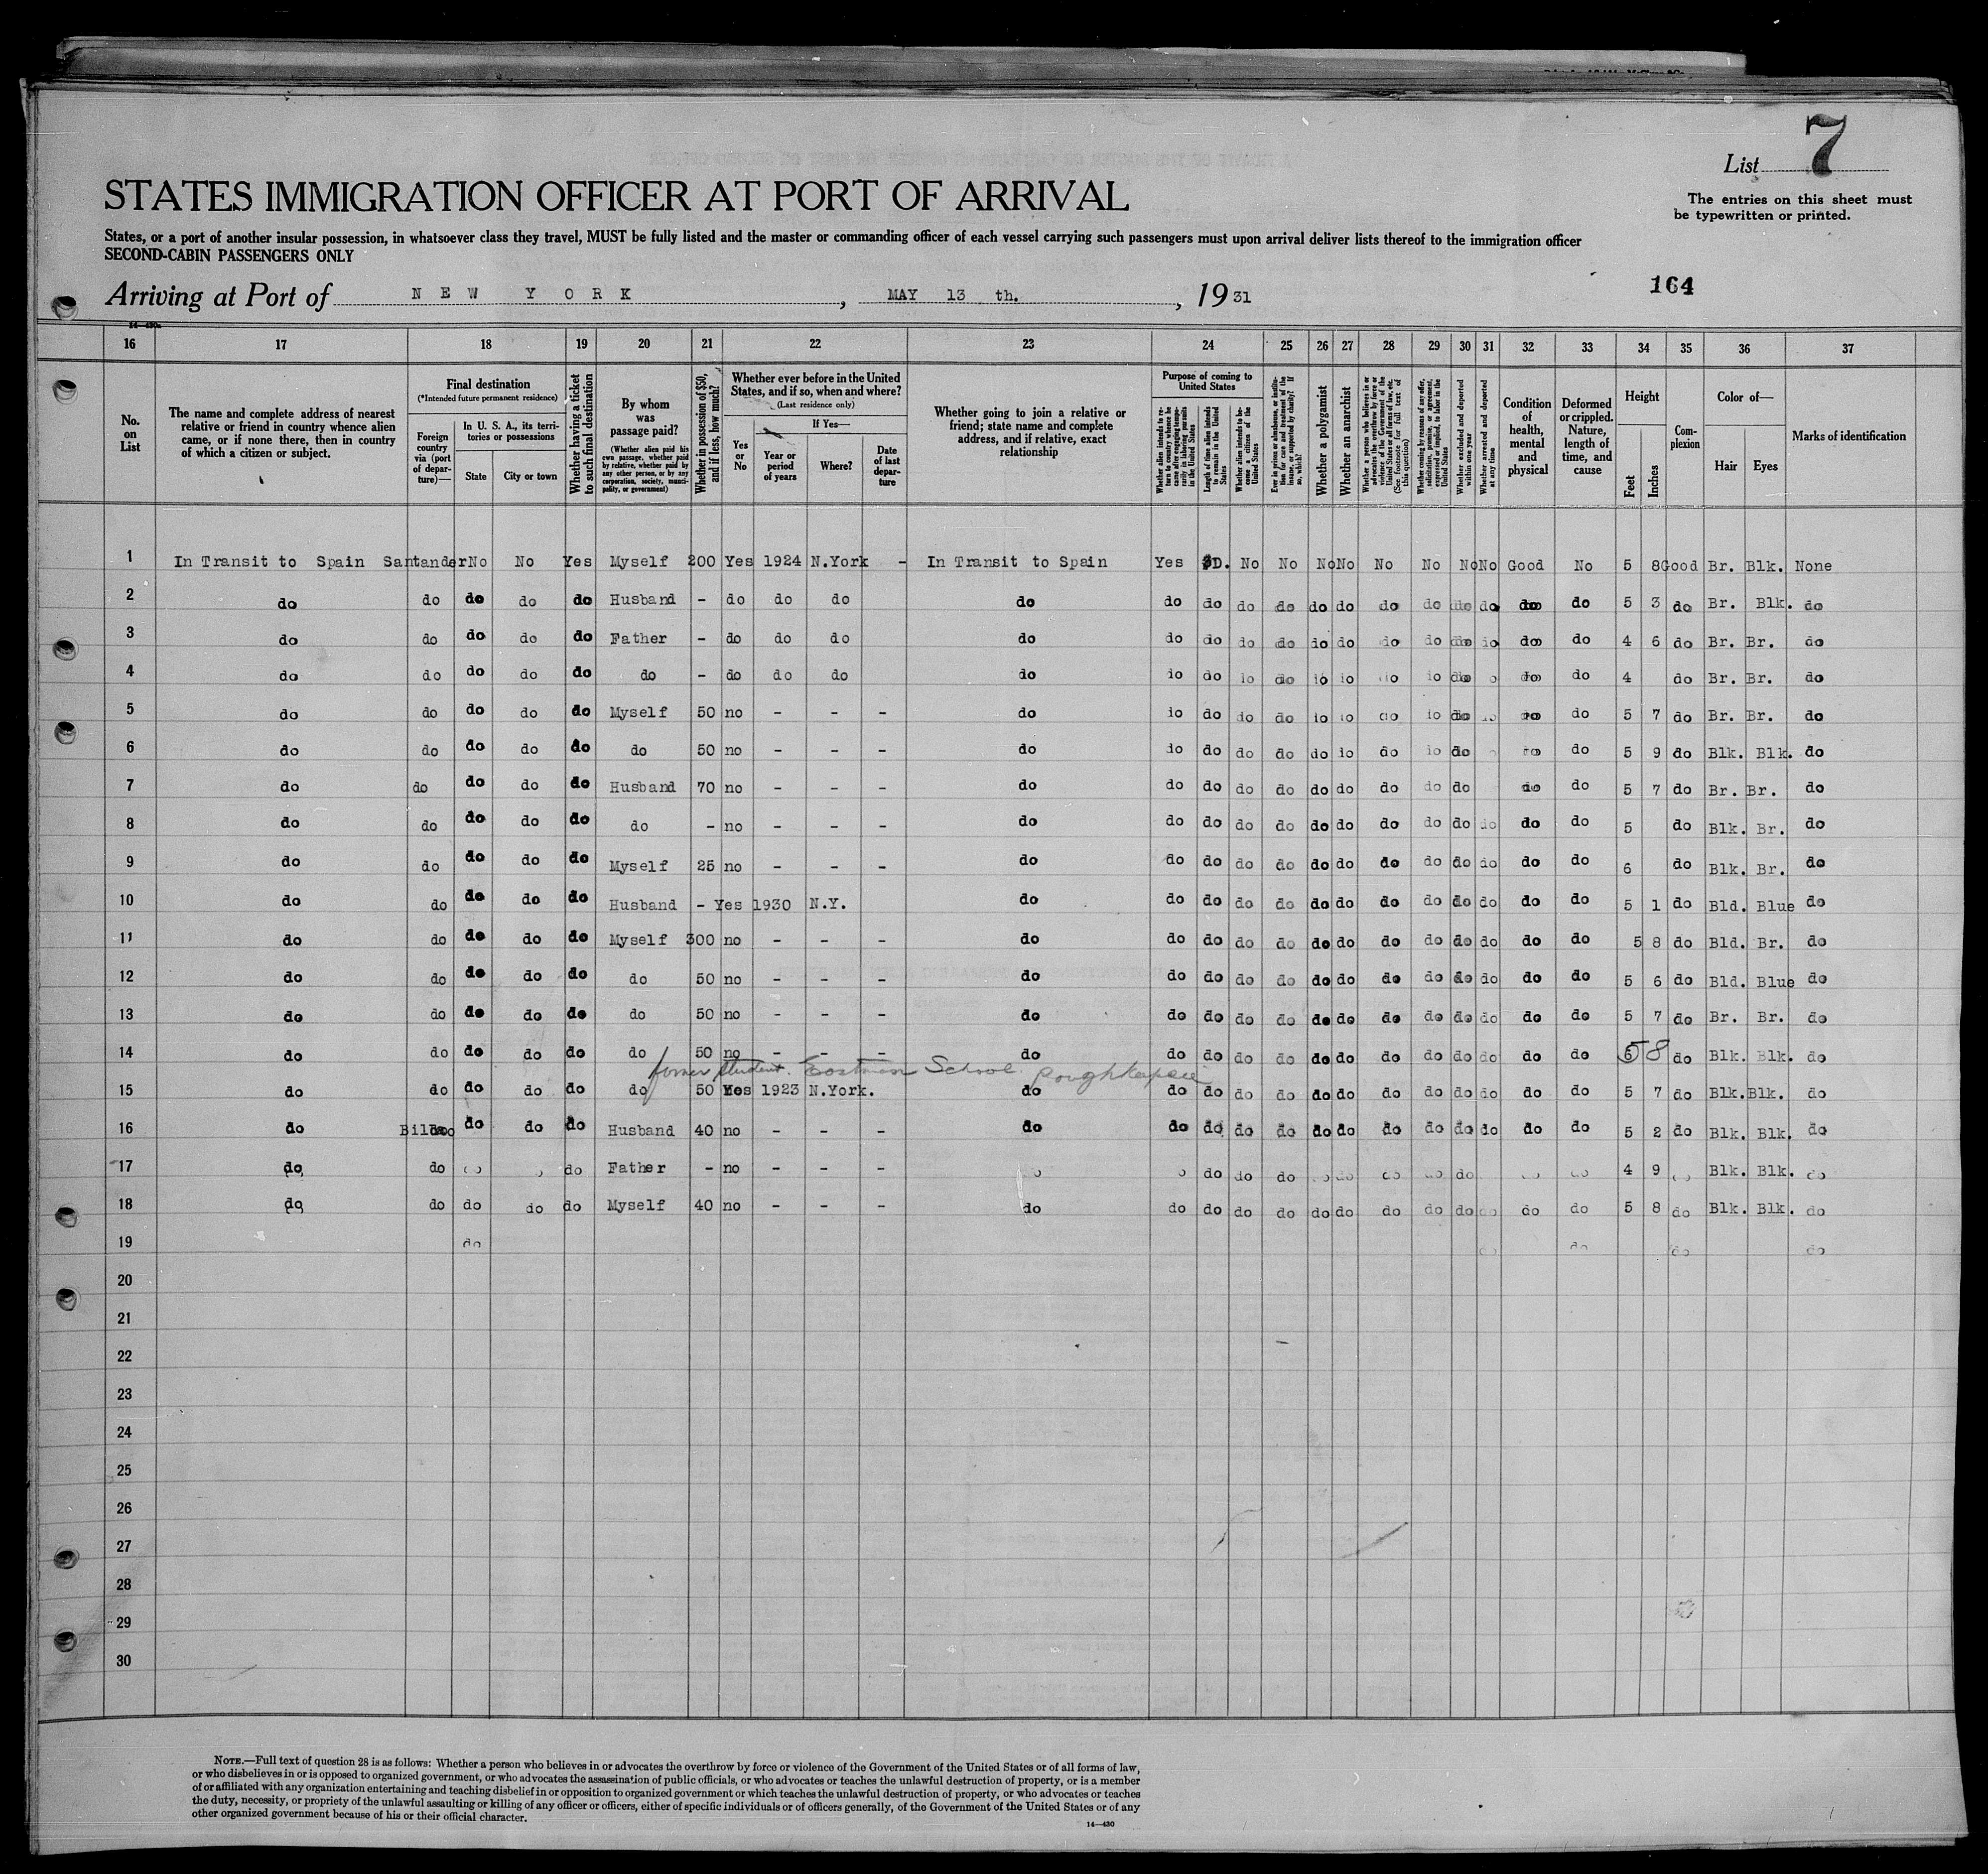 List 7
The entries on this sheet must
be typewritten or printed.
STATES IMMIGRATION OFFICER AT PORT OF ARRIVAL
States, or a port of another insular possession, in whatsoever class they travel, MUST be fully listed and the master or commanding officer of each vessel carrying such passengers must upon arrival deliver lists thereof to the immigration officer
SECOND-CABIN PASSENGERS ONLY
164
Arriving at Port of NEW YORK, MAY 13 th., 19 31
16 17 18 19 20 21 22 23 24 25 26 27 28 29 30 31 32 33 34 35 36 37
No. on List
The name and complete address of nearest relative or friend in country whence alien came, or if none there, then in country of which a citizen or subject.
Final destination
(*Intended future permanent residence)
Foreign country via (port of departure)—
In U. S. A., its territories or possessions
State
City or town
Whether having a ticket to such final destination
By whom was passage paid?
(Whether alien paid his own passage, whether paid by relative, whether paid by any other person, or by any corporation, society, municipality, or government)
Whether in possession of $50, and if less, how much?
Whether ever before in the United States, and if so, when and where?
(Last residence only)
Yes or No
If Yes—
Year or period of years
Where?
Date of last departure
Whether going to join a relative or friend; state name and complete address, and if relative, exact relationship
Purpose of coming to United States
Whether alien intends to return to country whence he came after engaging temporarily in laboring pursuits in the United States
Length of time alien intends to remain in the United States
Whether alien intends to become a citizen of the United States
Ever in prison or almshouse, or institution for care and treatment of the insane, or supported by charity? If so, which?
Whether a polygamist
Whether an anarchist
Whether a person who believes in or advocates the overthrow by force or violence of the Government of the United States or all forms of law, etc. (See footnote for full text of this question)
Whether coming by reasons of any offer, solicitation, promise, or agreement, expressed or implied, to labor in the United States
Whether excluded and deported within one year
Whether arrested and deported at any time
Condition of health, mental and physical
Deformed or crippled. Nature, length of time, and cause
Height
Feet
Inches
Complexion
Color of—
Hair
Eyes
Marks of identification
1 In Transit to Spain Santander No No Yes Myself 200 Yes 1924 N.York - In Transit to Spain Yes D. No No No No No No No No Good No 5 8 Good Br. Blk. None
2 do do do do do Husband - do do do do do do do do do do do do do do do do 5 3 do Br. Blk. do
3 do do do do do Father - do do do do do do do do do do do do do do do do 4 6 do Br. Br. do
4 do do do do do do - do do do do do do do do do do do do do do do 4 do Br. Br. do
5 do do do do do Myself 50 no - - - do do do do do do do do do do do do do 5 7 do Br. Br. do
6 do do do do do do 50 no - - - do do do do do do do do do do do do 5 9 do Blk. Blk. do
7 do do do do do Husband 70 no - - - do do do do do do do do do do do do 5 7 do Br. Br. do
8 do do do do do do - no - - - do do do do do do do do do do do do do 5 do Blk. Br. do
9 do do do do do Myself 25 no - - - do do do do do do do do do do do do do 6 do Blk. Br. do
10 do do do do do Husband - Yes 1930 N.Y. do do do do do do do do do do do do do 5 1 do Bld. Blue do
11 do do do do do Myself 300 no - - - do do do do do do do do do do do do do 5 8 do Bld. Br. do
12 do do do do do do 50 no - - - do do do do do do do do do do do do do 5 6 do Bld. Blue do
13 do do do do do do 50 no - - - do do do do do do do do do do do do do 5 7 do Br. Br. do
14 do do do do do do 50 no - - - do do do do do do do do do do do do do 5 8 do Blk. Blk. do
former student Eastman School Poughkeepsie
15 do do do do do do 50 Yes 1923 N.York. do do do do do do do do do do do do do 5 7 do Blk. Blk. do
16 do Bilbao do do do Husband 40 no - - - do do do do do do do do do do do do do 5 2 do Blk. Blk. do
17 do do do Father - no - - - do do do do do 4 9 Blk. Blk. do
18 do do do do do Myself 40 no - - - do do do do do do do do do do do do do 5 8 do Blk. Blk. do
19 do do do do do
20
21
22
23
24
25
26
27
28
29
30
NOTE.—Full text of question 28 is as follows: Whether a person who believes in or advocates the overthrow by force or violence of the Government of the United States or of all forms of law,
or who disbelieves in or is opposed to organized government, or who advocates the assassination of public officials, or who advocates or teaches the unlawful destruction of property, or is a member
of or affiliated with any organization entertaining and teaching disbelief in or opposition to organized government or which teaches the unlawful destruction of property, or who advocates or teaches
the duty, necessity, or propriety of the unlawful assaulting or killing of any officer or officers, either of specific individuals or of officers generally, of the Government of the United States or of any
other organized government because of his or their official character.
14—430